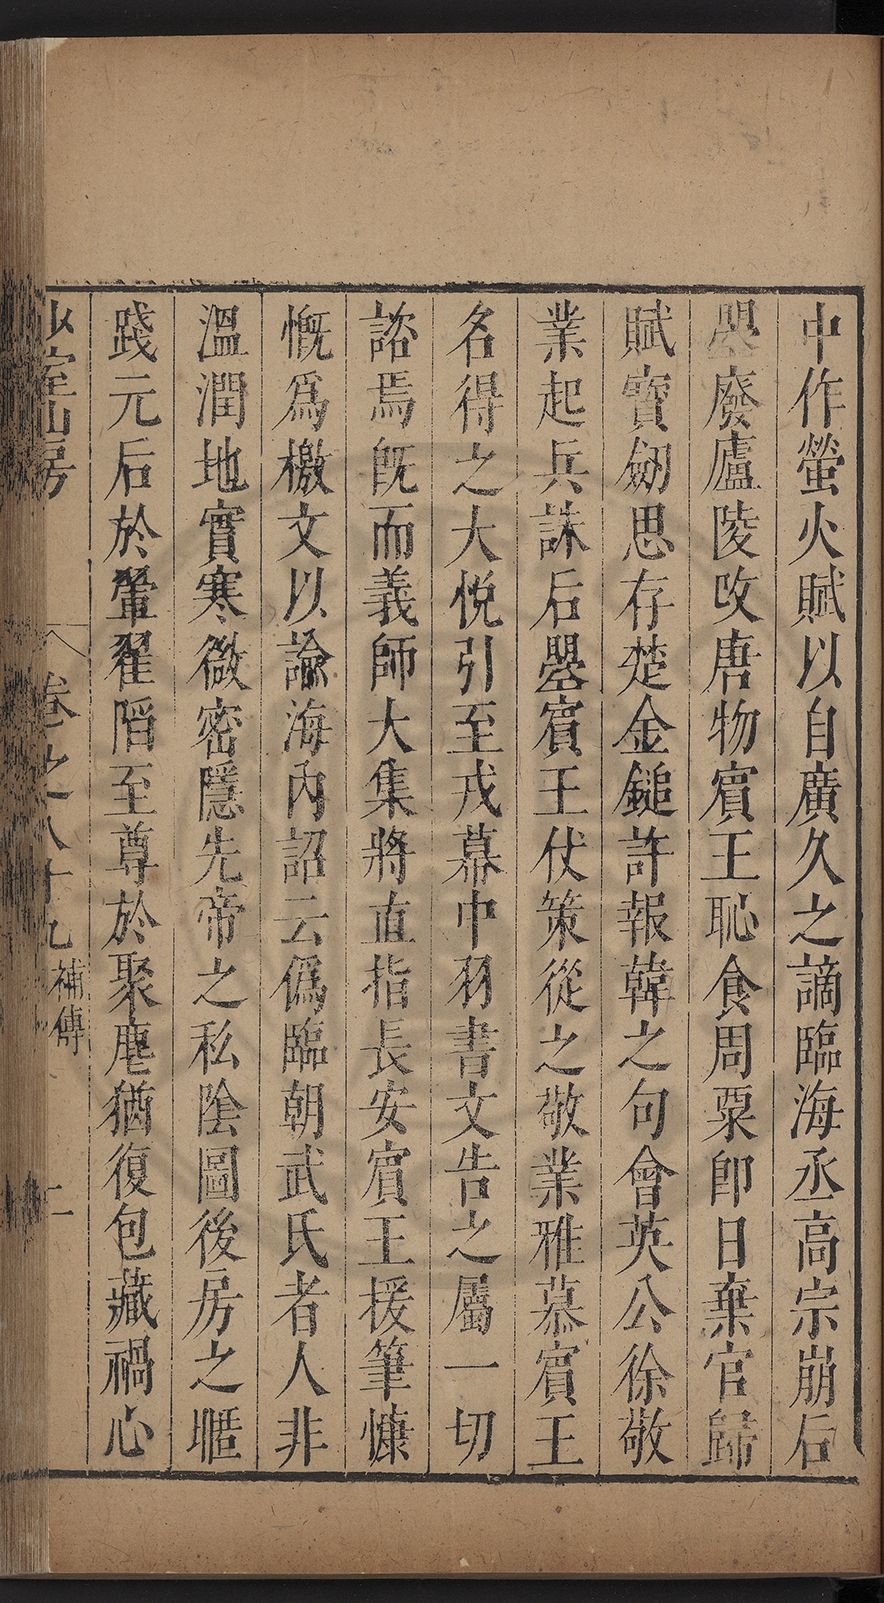 中作螢火賦以自廣久之謫臨海丞高宗崩后
曌廢廬陵改唐物賓王恥食周粟卽日棄官歸
賦寶劒思存楚金鎚許報韓之句會英公徐敬
業起兵誅后曌賓王伏策從之敬業雅慕賓王
名得之大悅引至戎幕中羽書文告之屬一切
諮焉旣而義師大集將直指長安賓王援筆慷
慨爲檄文以諭海內詔云僞臨朝武氏者人非
溫潤地實寒微密隱先帝之私陰圖後房之嬖
踐元后於翬翟陷至尊於聚麀猶復包藏禍心
少室山房
卷之八十九 補傳 二